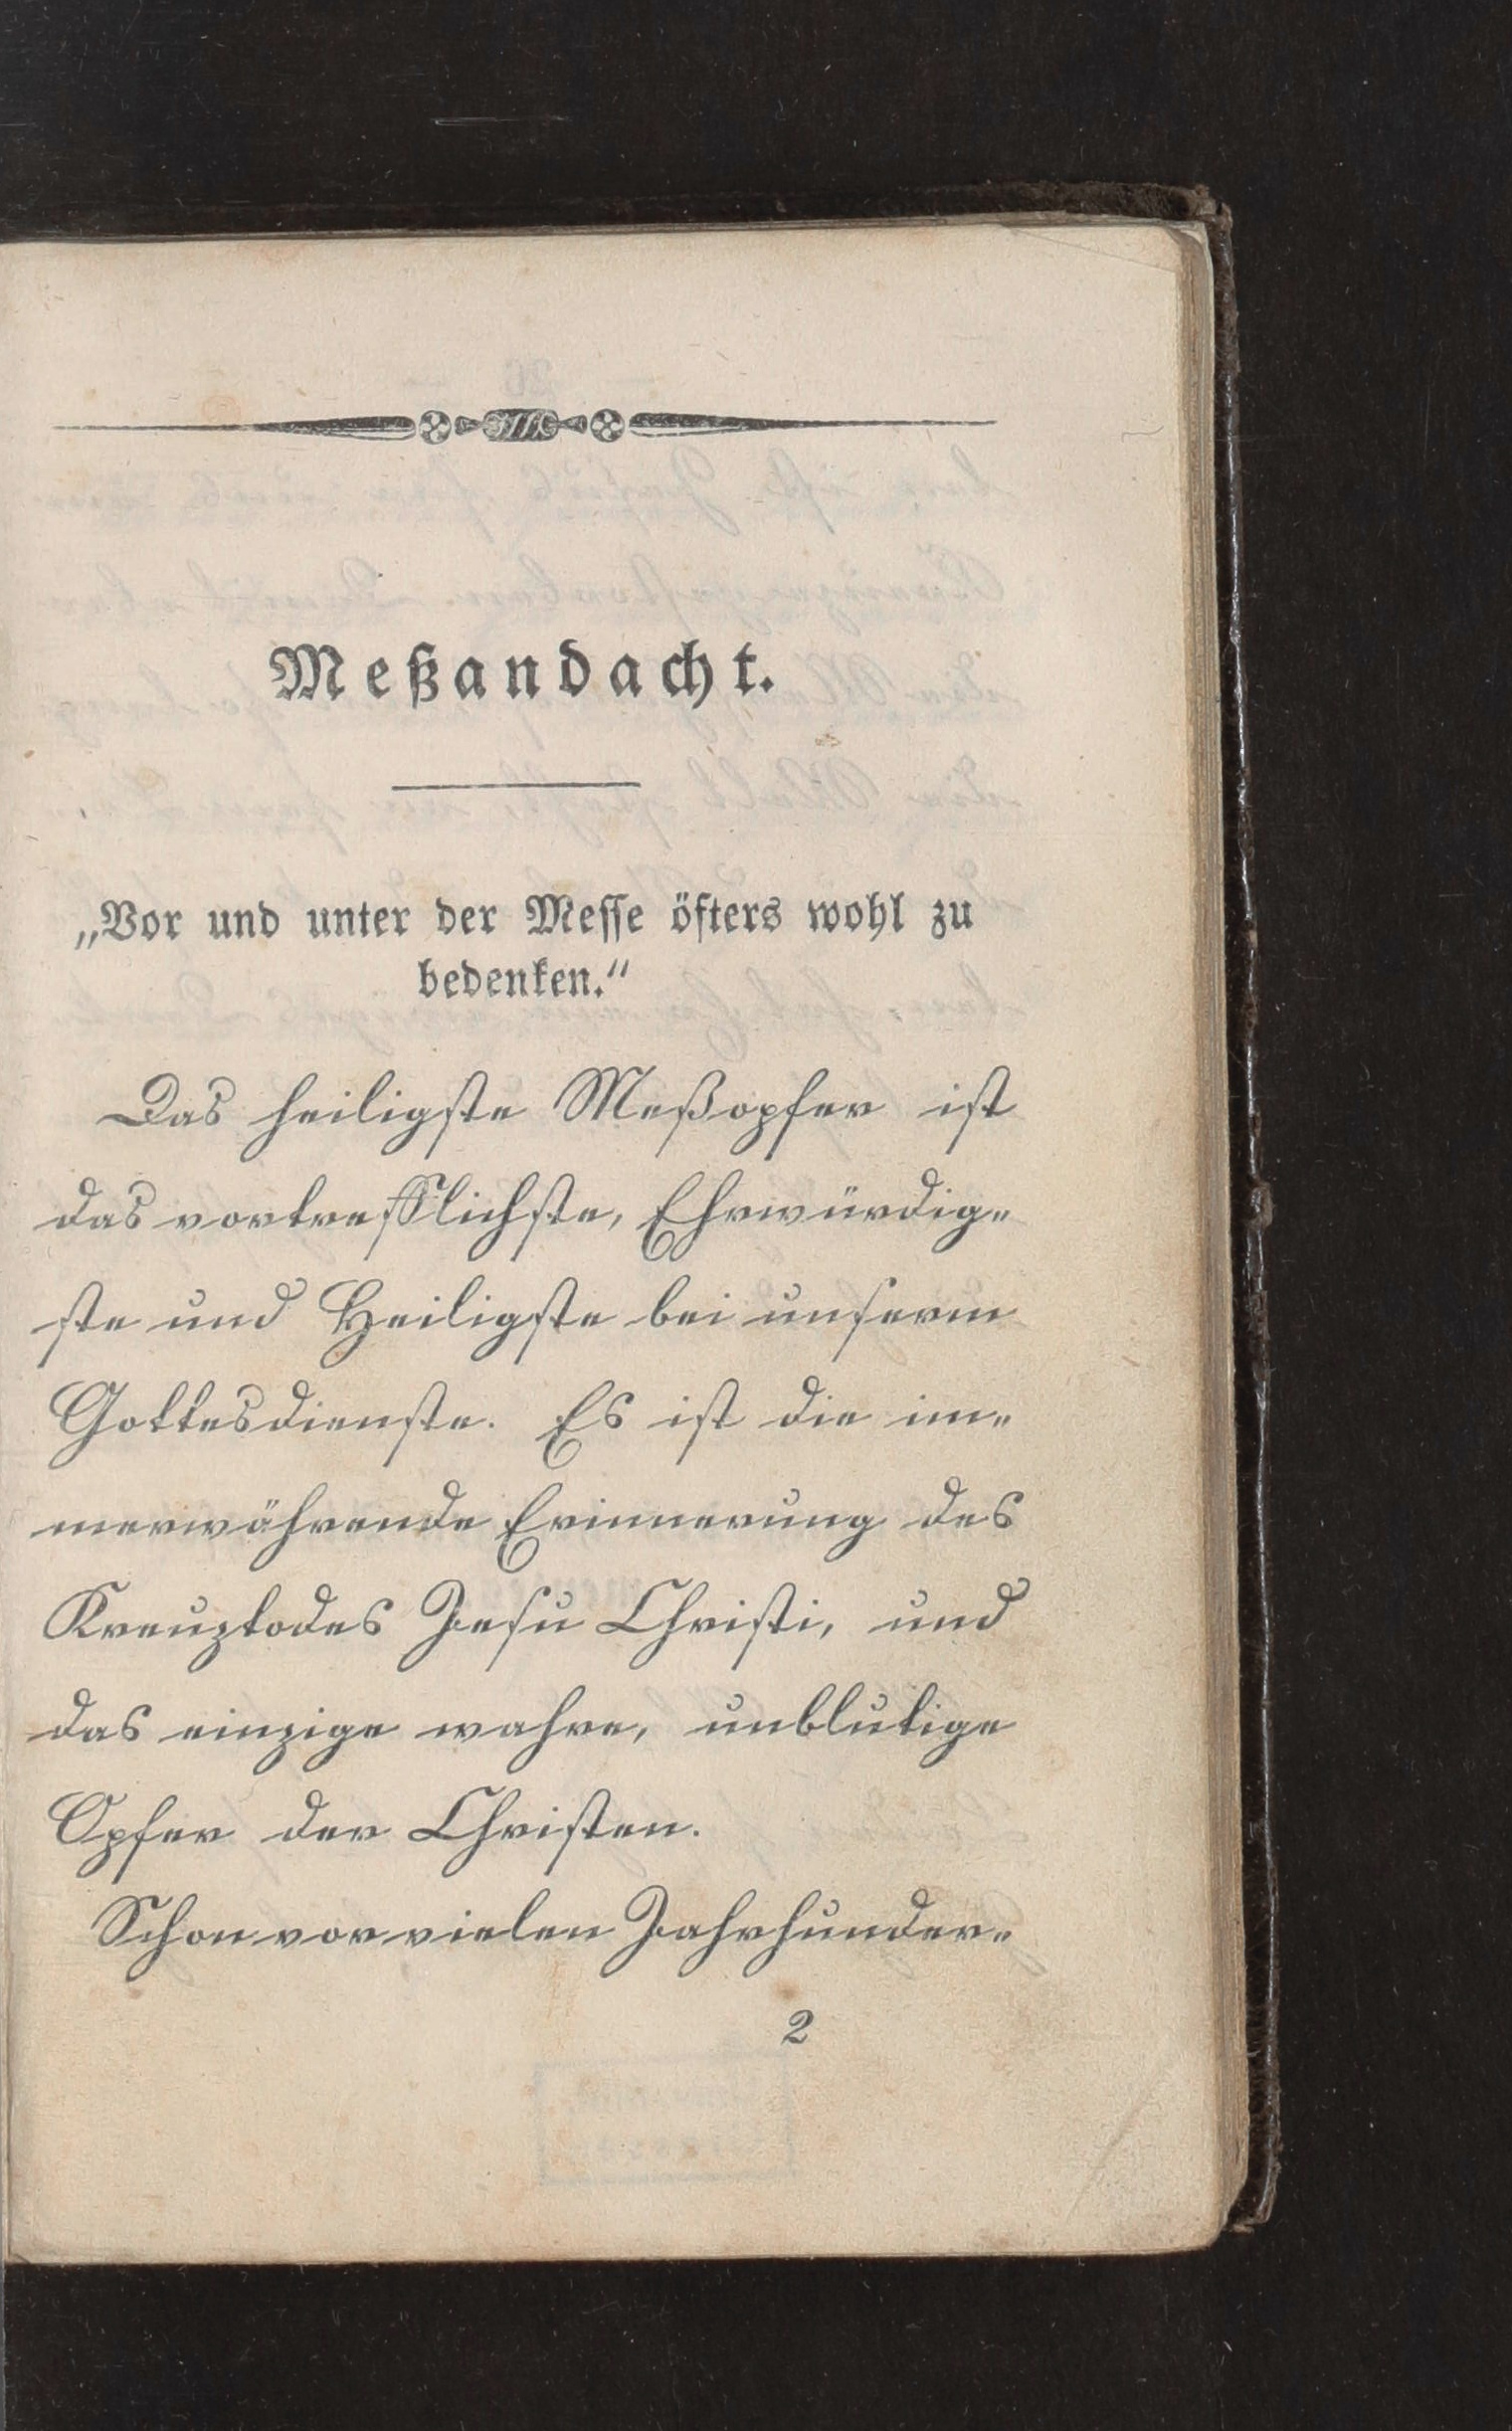 Meßandacht.
„Vor und unter der Messe öfters wohl zu
bedenken.“
Das heiligste Meßopfer ist
das vortrefflichste, Ehrwürdig„
ste und Heiligste bei unserm
Gottesdienste. Es ist die im„
merwährende Erinnerung des
Kreuztodes Jesu Christi, und
das einzige wahre, unblutige
Opfer der Christen.
Schon vor vielen Jahrhunder„
2